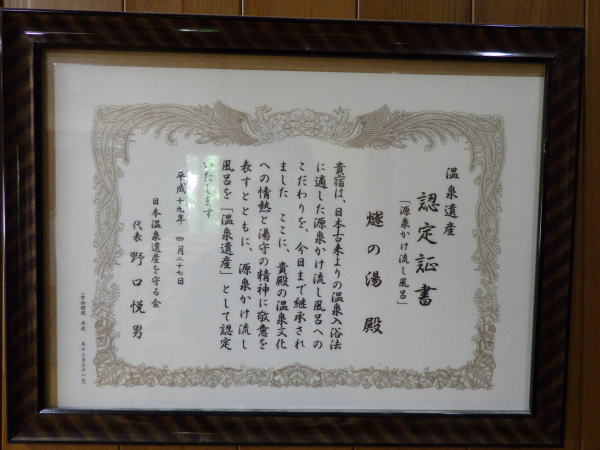 温泉遺産
認定証書
「源泉かけ流し風呂」
燧の湯 殿
貴宿は、日本古来よりの温泉入浴法
に適した源泉かけ流し風呂への
こだわりを、今日まで継承され
ました ここに、貴殿の温泉文化
への情熱と湯守の精神に敬意を
表すとともに、源泉かけ流し
風呂を「温泉遺産」として認定
いたします
平成十九年 四月二十七日
日本温泉遺産を守る会
代表 野口悦男
(有効期限 平成 年十二月三十一日)